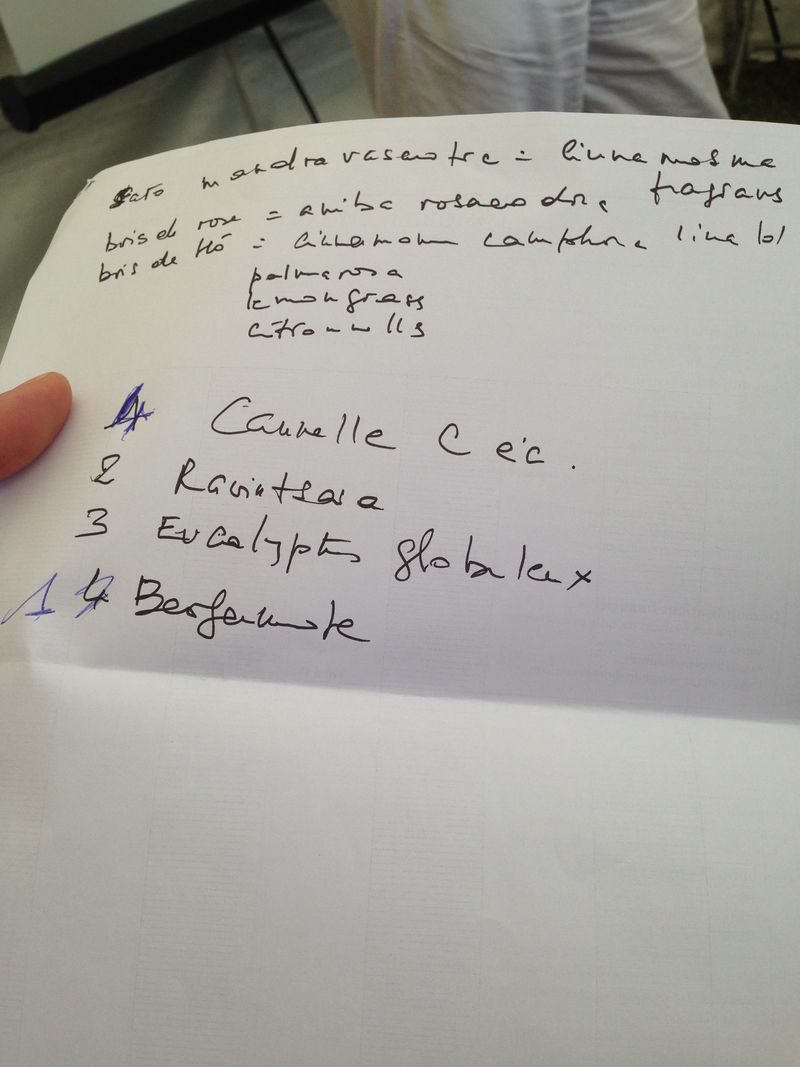 mandravasarotra = cinnamosma fragrans
bois de rose = aniba rosaeodora
bois de Hô = cinnamomum camphora linalol
palmarosa
lemongrass
citronnelle
4 Cannelle C éc.
2 Ravintsara
3 Eucalyptus globuleux
1 4 Bergamote